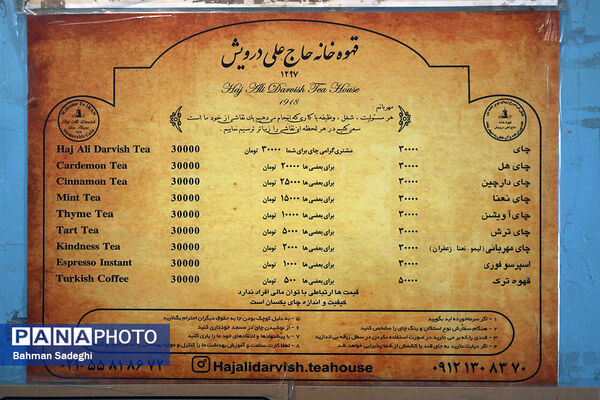 قهوه خانه حاج علی درویش
۱۲۹۷
Haj Ali Darvish Tea House
1918
مهربانم :
هر مسئولیت ، شغل ، وظیفه یا کاری که انجام می دهیم یک نقاشی از خود ما است
سعی کنیم در هر لحظه این نقاشی را زیباتر ترسیم نماییم .
Welcome To IRAN
Haj Ali Darvish
Tea House
Haj Ali Darvish Tea 30000 مشتری گرامی چای برای شما ۳۰۰۰۰ تومان ۳۰۰۰۰ چای
Cardemon Tea 30000 برای بعضی ها ۲۰۰۰۰ تومان ۳۰۰۰۰ چای هل
Cinnamon Tea 30000 برای بعضی ها ۲۵۰۰۰ تومان ۳۰۰۰۰ چای دارچین
Mint Tea 30000 برای بعضی ها ۱۵۰۰۰ تومان ۳۰۰۰۰ چای نعنا
Thyme Tea 30000 برای بعضی ها ۱۰۰۰۰ تومان ۳۰۰۰۰ چای آویشن
Tart Tea 30000 برای بعضی ها ۵۰۰۰ تومان ۳۰۰۰۰ چای ترش
Kindness Tea 30000 برای بعضی ها ۲۰۰۰ تومان ۳۰۰۰۰ چای مهربانی (لیمو . نعنا . زعفران)
Espresso Instant 30000 برای بعضی ها ۱۰۰۰ تومان ۳۰۰۰۰ اسپرسو فوری
Turkish Coffee 30000 برای بعضی ها ۵۰۰ تومان ۵۰۰۰۰ قهوه ترک
قیمت ها ارتباطی با توان مالی افراد ندارد
کیفیت و اندازه چای یکسان است
۱ - اگر سرماخورده اید بگویید
۲ - هنگام سفارش نوع استکان و رنگ چای را مشخص کنید
۳ - قندی را که بر می دارید در صورت استفاده نکردن در سطل زباله بی اندازید
۴ - اگر دیابت دارید به جای قند با کشمش از شما پذیرایی خواهد شد
۵ - به دلیل کوچک بودن جا به حقوق دیگران احترام بگذارید
۶ - از نوشیدن چای در مسجد خودداری کنید
۷ - با پیشنهادها و انتقادهای خود ما را یاری کنید
۸ - لطفا کارت سلامت و آموزش بهداشت ما را کنترل و
۰۲۱-۵۵ ۸۱ ۸۶ ۷۲ Hajalidarvish.teahouse ۰۹۱۲ ۱۳۰ ۸۳ ۷۰
PANAPHOTO
Bahman Sadeghi